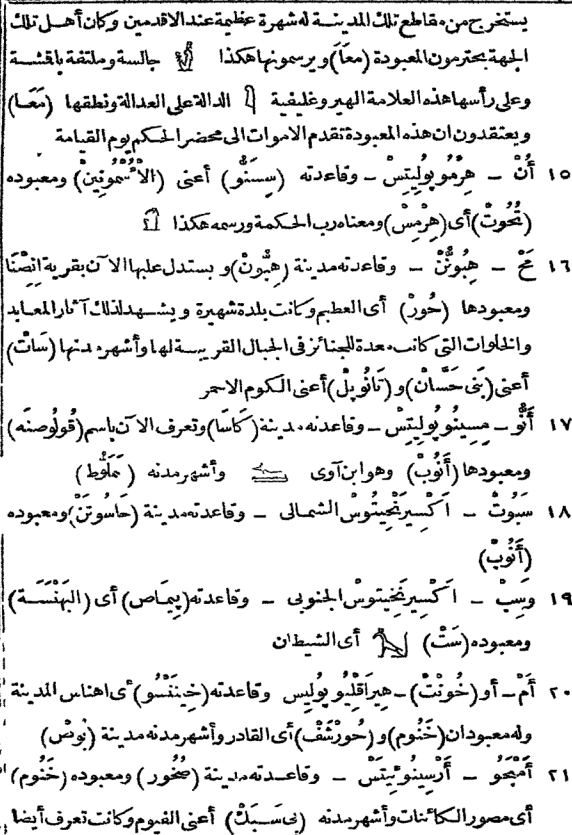 يستخرج من مقاطع تلك المدينة له شهرة عظيمة عند الاقدمين وكان أهل تلك
الجهة يحترمون المعبودة (معَا) ويرسمونها هكذا جالسة وملتفة باقشة
وعلى رأسها هذه العلامة الهيروغليفية الدالة على العدالة ونطقها (مَعَا)
ويعتقدون ان هذه المعبودة تقدم الاموات الى محضر الحكم يوم القيامة
١٥ أُنْ – هِرْمُوپُولِيتِسْ – وقاعدته (سِسَنُّو) أعنى (الأُشْمُونِين) ومعبوده
(تحُوتْ) أى (هِرْمِسْ) ومعناه رب الحكمة ورسمه هكذا
١٦ مَحْ – هِبُونُنْ – وقاعدته مدينة (هِبُّونْ) ويستدل عليها الآن بقرية انْصِنَا
ومعبودها (حُورْ) أى العظيم وكانت بلدة شهيرة ويشهد لذلك آثار المعابد
والخلوات التى كانت معدة للجنائز فى الجبال القريبة لها وأشهر مدنها (سَاتْ)
أعنى (بَنِى حَسَّانْ) و (تَانُوبِلْ) أعنى الكوم الاحمر
١٧ أَنُّو – مِسِينُوپُولِيتِسْ – وقاعدته مدينة (كَاسَا) وتعرف الآن باسم (قُولُوصنَه)
ومعبودها (أَنُوبْ) وهو ابن آوى وأشهر مدنه (سَمَالُوط)
١٨ سَبُوتْ – اَكْسِيرِنْخِيتُوسْ الشمالى – وقاعدته مدينة (حَاسُوتِنْ) ومعبوده
(أَنُوبْ)
١٩ وَسِبْ – اَكْسِيرِنْخِيتُوسْ الجنوبى – وقاعدته (پيمَاص) أى (البَهْنَسَة)
ومعبوده (سَتْ) أى الشيطان
٢٠ أَمْ – أو (خُونْتْ) – هِيرَاقْلِيُوپُولِيس وقاعدته (خِينَنْسُو) أى اهناس المدينة
وله معبودان (خَنُوم) و (حُورْشَفْ) أى القادر وأشهر مدنه مدينة (بُوص)
٢١ أَمْبِحُو – أَرْسِينُوئِيتَسْ – وقاعدته مدينة (صُخُور) ومعبوده (خَنُوم)
أى مصور الكائنات وأشهر مدنه (پى سَبَكْ) أعنى الفيوم وكانت تعرف أيضا